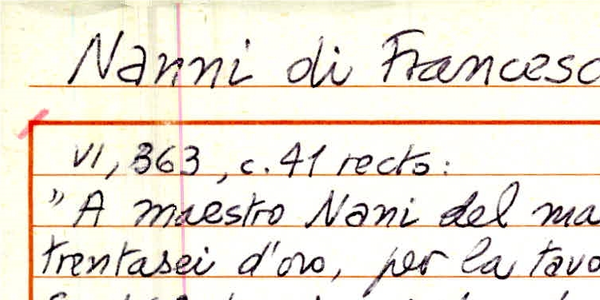 Nanni di Francesc
VI, 363, c. 41 recto:
"A maestro Nani del ma
trentasei d'oro, per la tavo